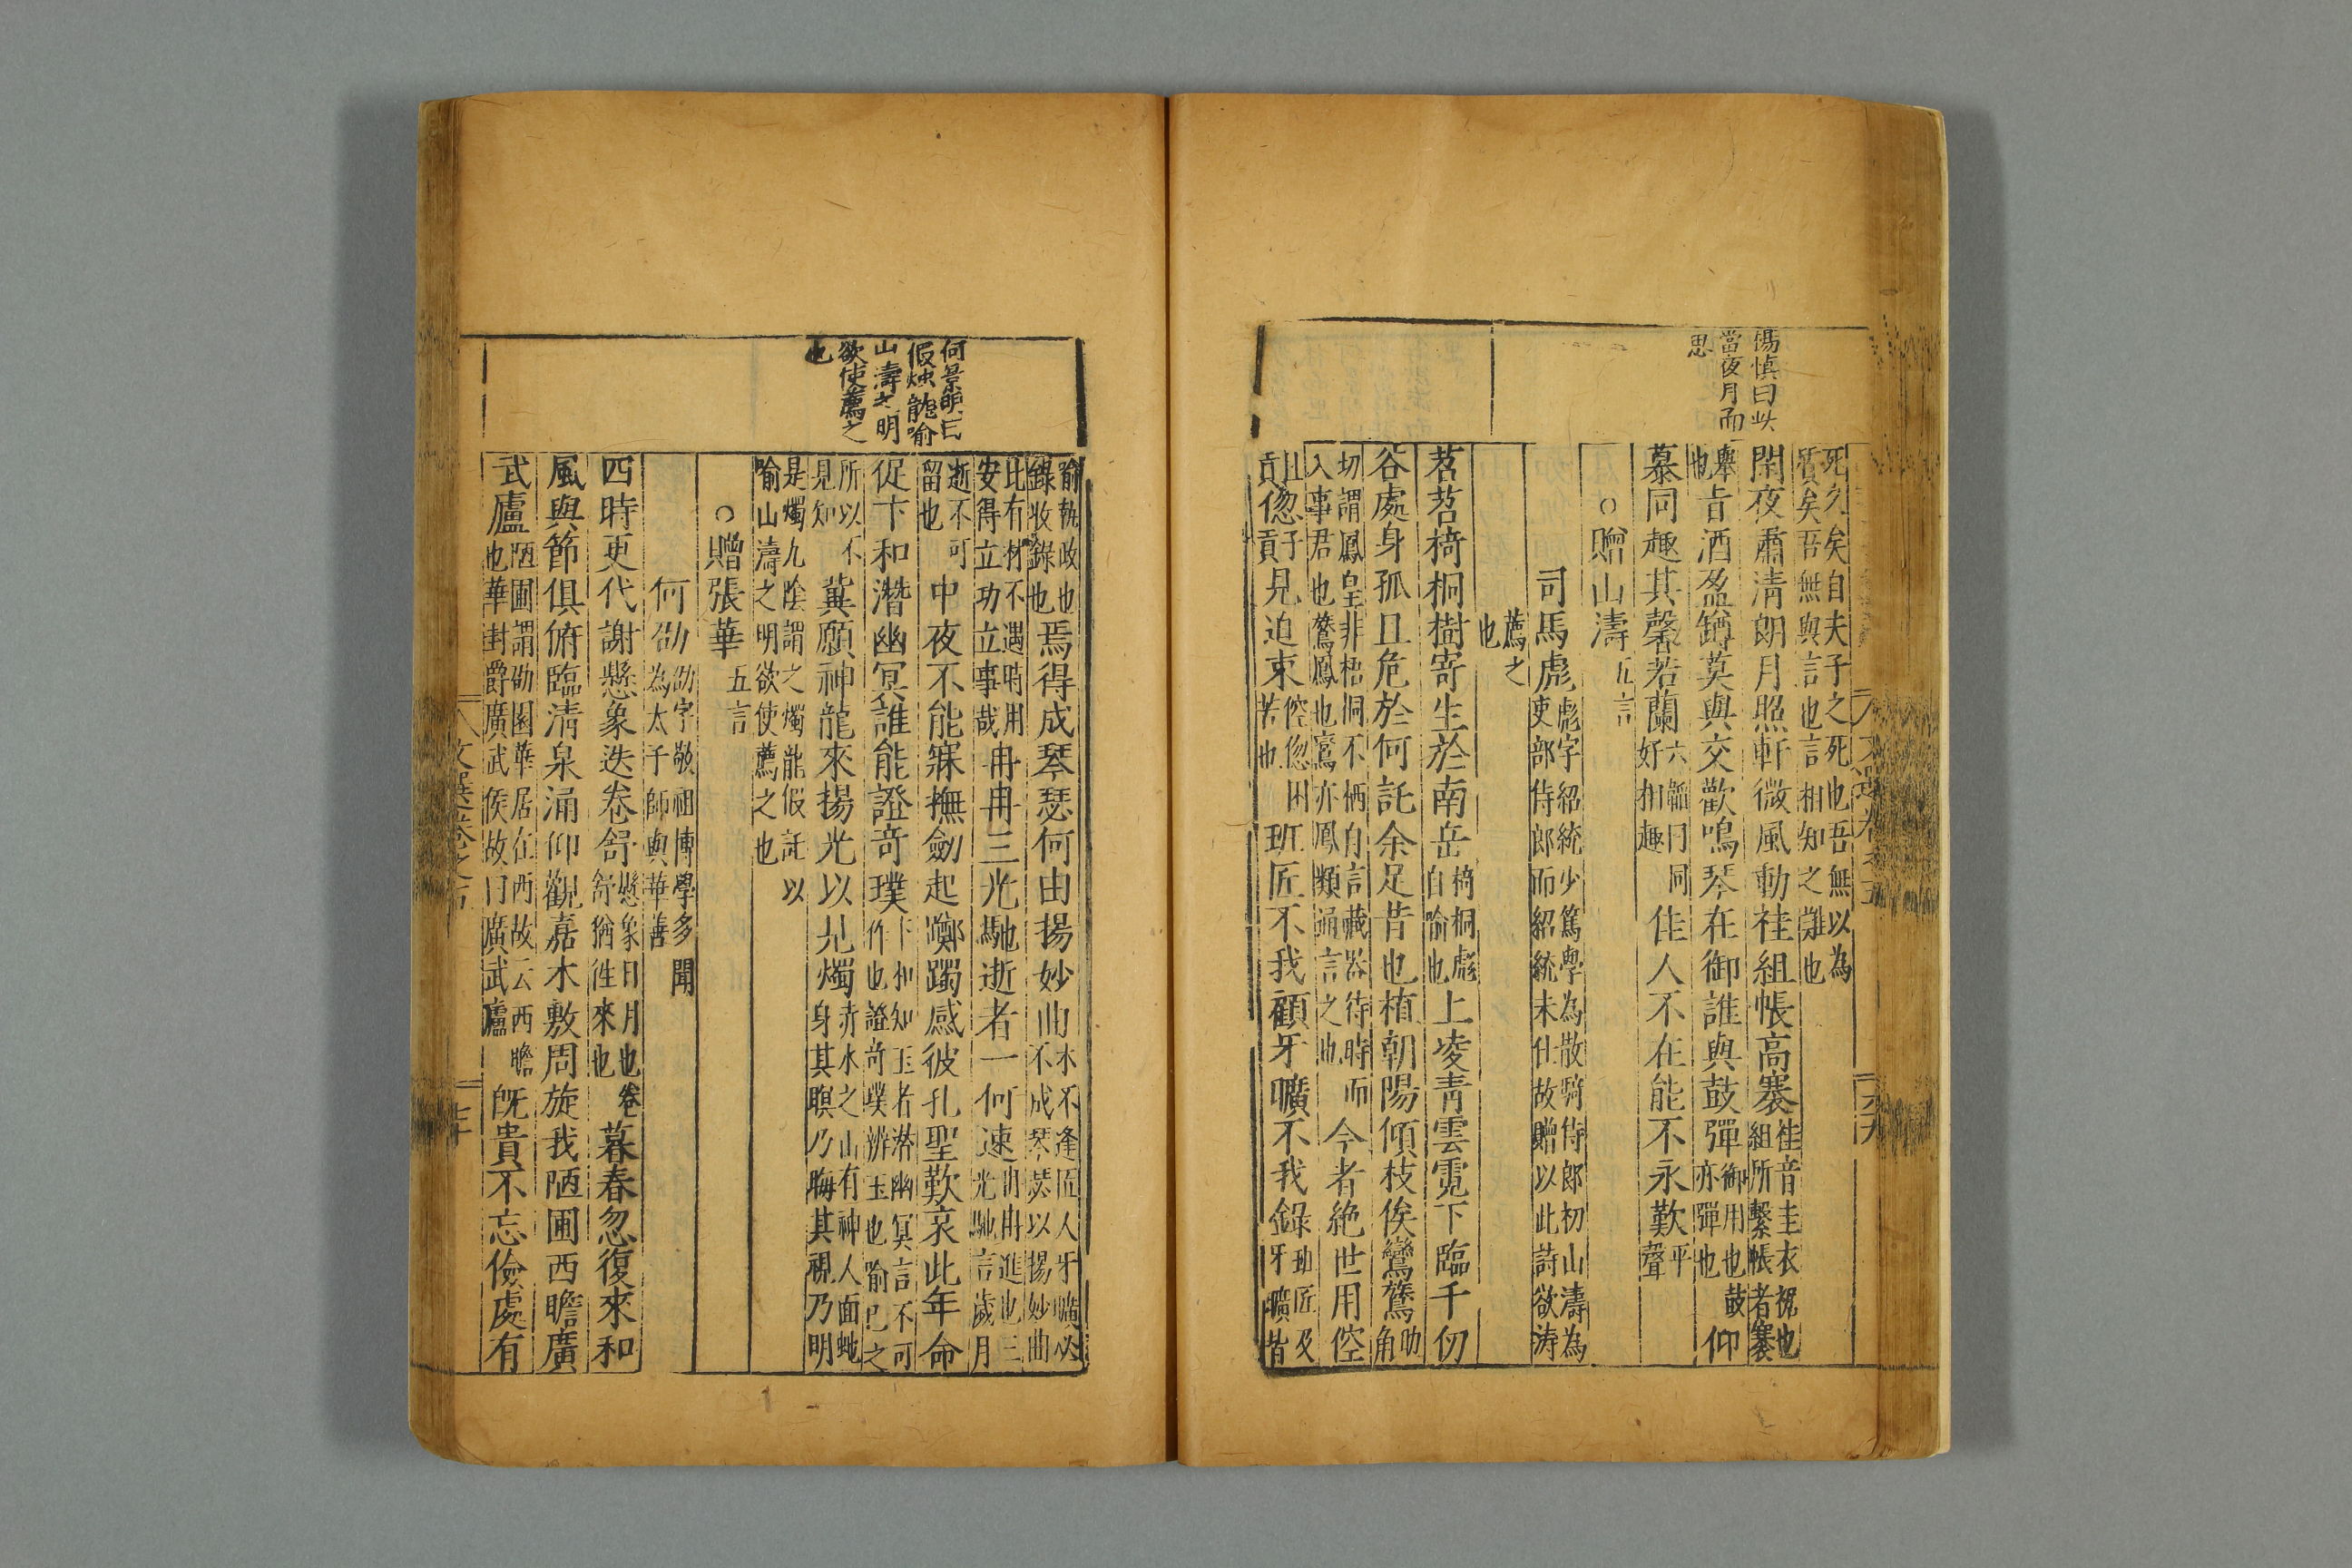 楊慎曰此
當夜月而
思
死久矣自夫子之死也吾無以為
質矣吾無與言也言相知之難也
閑夜肅清朗月照軒微風動袿組帳高褰
袿音圭衣裾也
組所繫帳者褰
舉
也
旨酒盈罇莫與交歡鳴琴在御誰與鼓彈
御用也鼓
亦彈也
仰
慕同趣其馨若蘭
六韜曰同
好相趣
佳人不在能不永歎
平
聲
○贈山濤
五言
司馬彪
彪字紹統少篤學為散騎侍郎初山濤為
吏部侍郎而紹統未仕故贈以此詩欲濤
薦之
也
苕苕椅桐樹寄生於南岳
椅桐彪
自喻也
上凌青雲霓下臨千仞
谷處身孤且危於何託余足昔也植朝陽傾枝俟鸞鷟
助
角
切謂鳳皇非梧桐不栖自言藏器待時而
入事君也鷟鳳也鸞亦鳳類通言之也
今者絶世用倥
且
貢
偬
子
貢
見迫束
倥偬困
苦也
班匠不我顧牙曠不我錄
班匠及
牙曠皆
何景明曰
假燭龍喻
山濤之明
欲使薦之
也
喻執政也
錄收錄也
焉得成琴瑟何由揚妙曲
木不逢匠人牙曠必
不成琴瑟以揚妙曲
比有材不遇時用
安得立功立事哉
冉冉三光馳逝者一何速
冉冉進也三
光馳言歲月
逝不可
留也
中夜不能寐撫劍起躑躅感彼孔聖歎哀此年命
促卞和潛幽冥誰能證奇璞
卞和知玉者潛幽冥言不可
作也證奇璞辨玉也喻已之
所以不
見知
冀願神龍來揚光以見燭
赤水之山有神人面蛇
身其瞑乃晦其視乃明
是燭九陰謂之燭龍假託以
喻山濤之明欲使薦之也
○贈張華
五言
何劭
劭字敬祖博學多聞
為太子師與華善
四時更代謝懸象迭卷舒
懸象日月也卷
舒猶徃來也
暮春忽復來和
風與節俱俯臨清泉涌仰觀嘉木敷周旋我陋圃西瞻廣
武廬
陋圃謂劭園華居在西故云西瞻
也華封爵廣武侯故曰廣武廬
既貴不忘儉處有